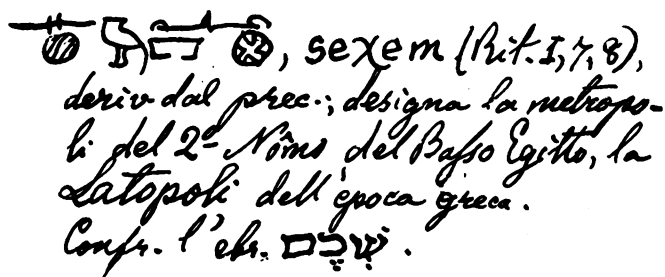 , seχem (Rit. I, 7, 8),
deriv. dal prec.; designa la metropo-
li del 2º Nômo del Basso Egitto, la
Latopoli dell'época greca.
Confr. l'ebr. שְׁכֶם.